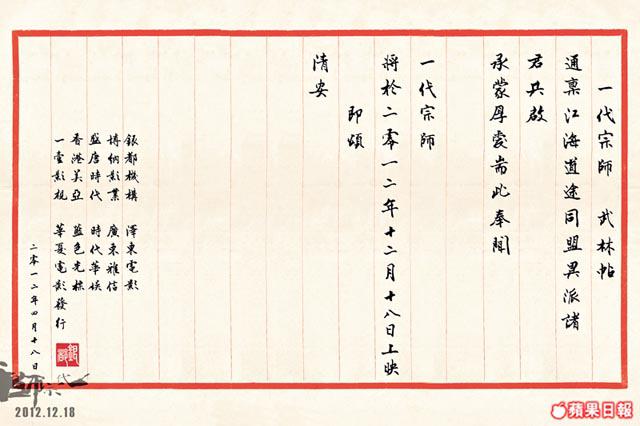 一代宗師 武林帖
通稟江海道途同盟異派諸
君共啟
承蒙厚愛耑此奉聞
一代宗師
將於二零一二年十二月十八日上映
即頌
清安
銀都機構 澤東電影
博納影業 廣東雅信
盛唐時代 時代華娛
香港美亞 藍色光標
一壹影視 華夏電影發行
二零一二年四月十八日
2012.12.18
蘋果日報